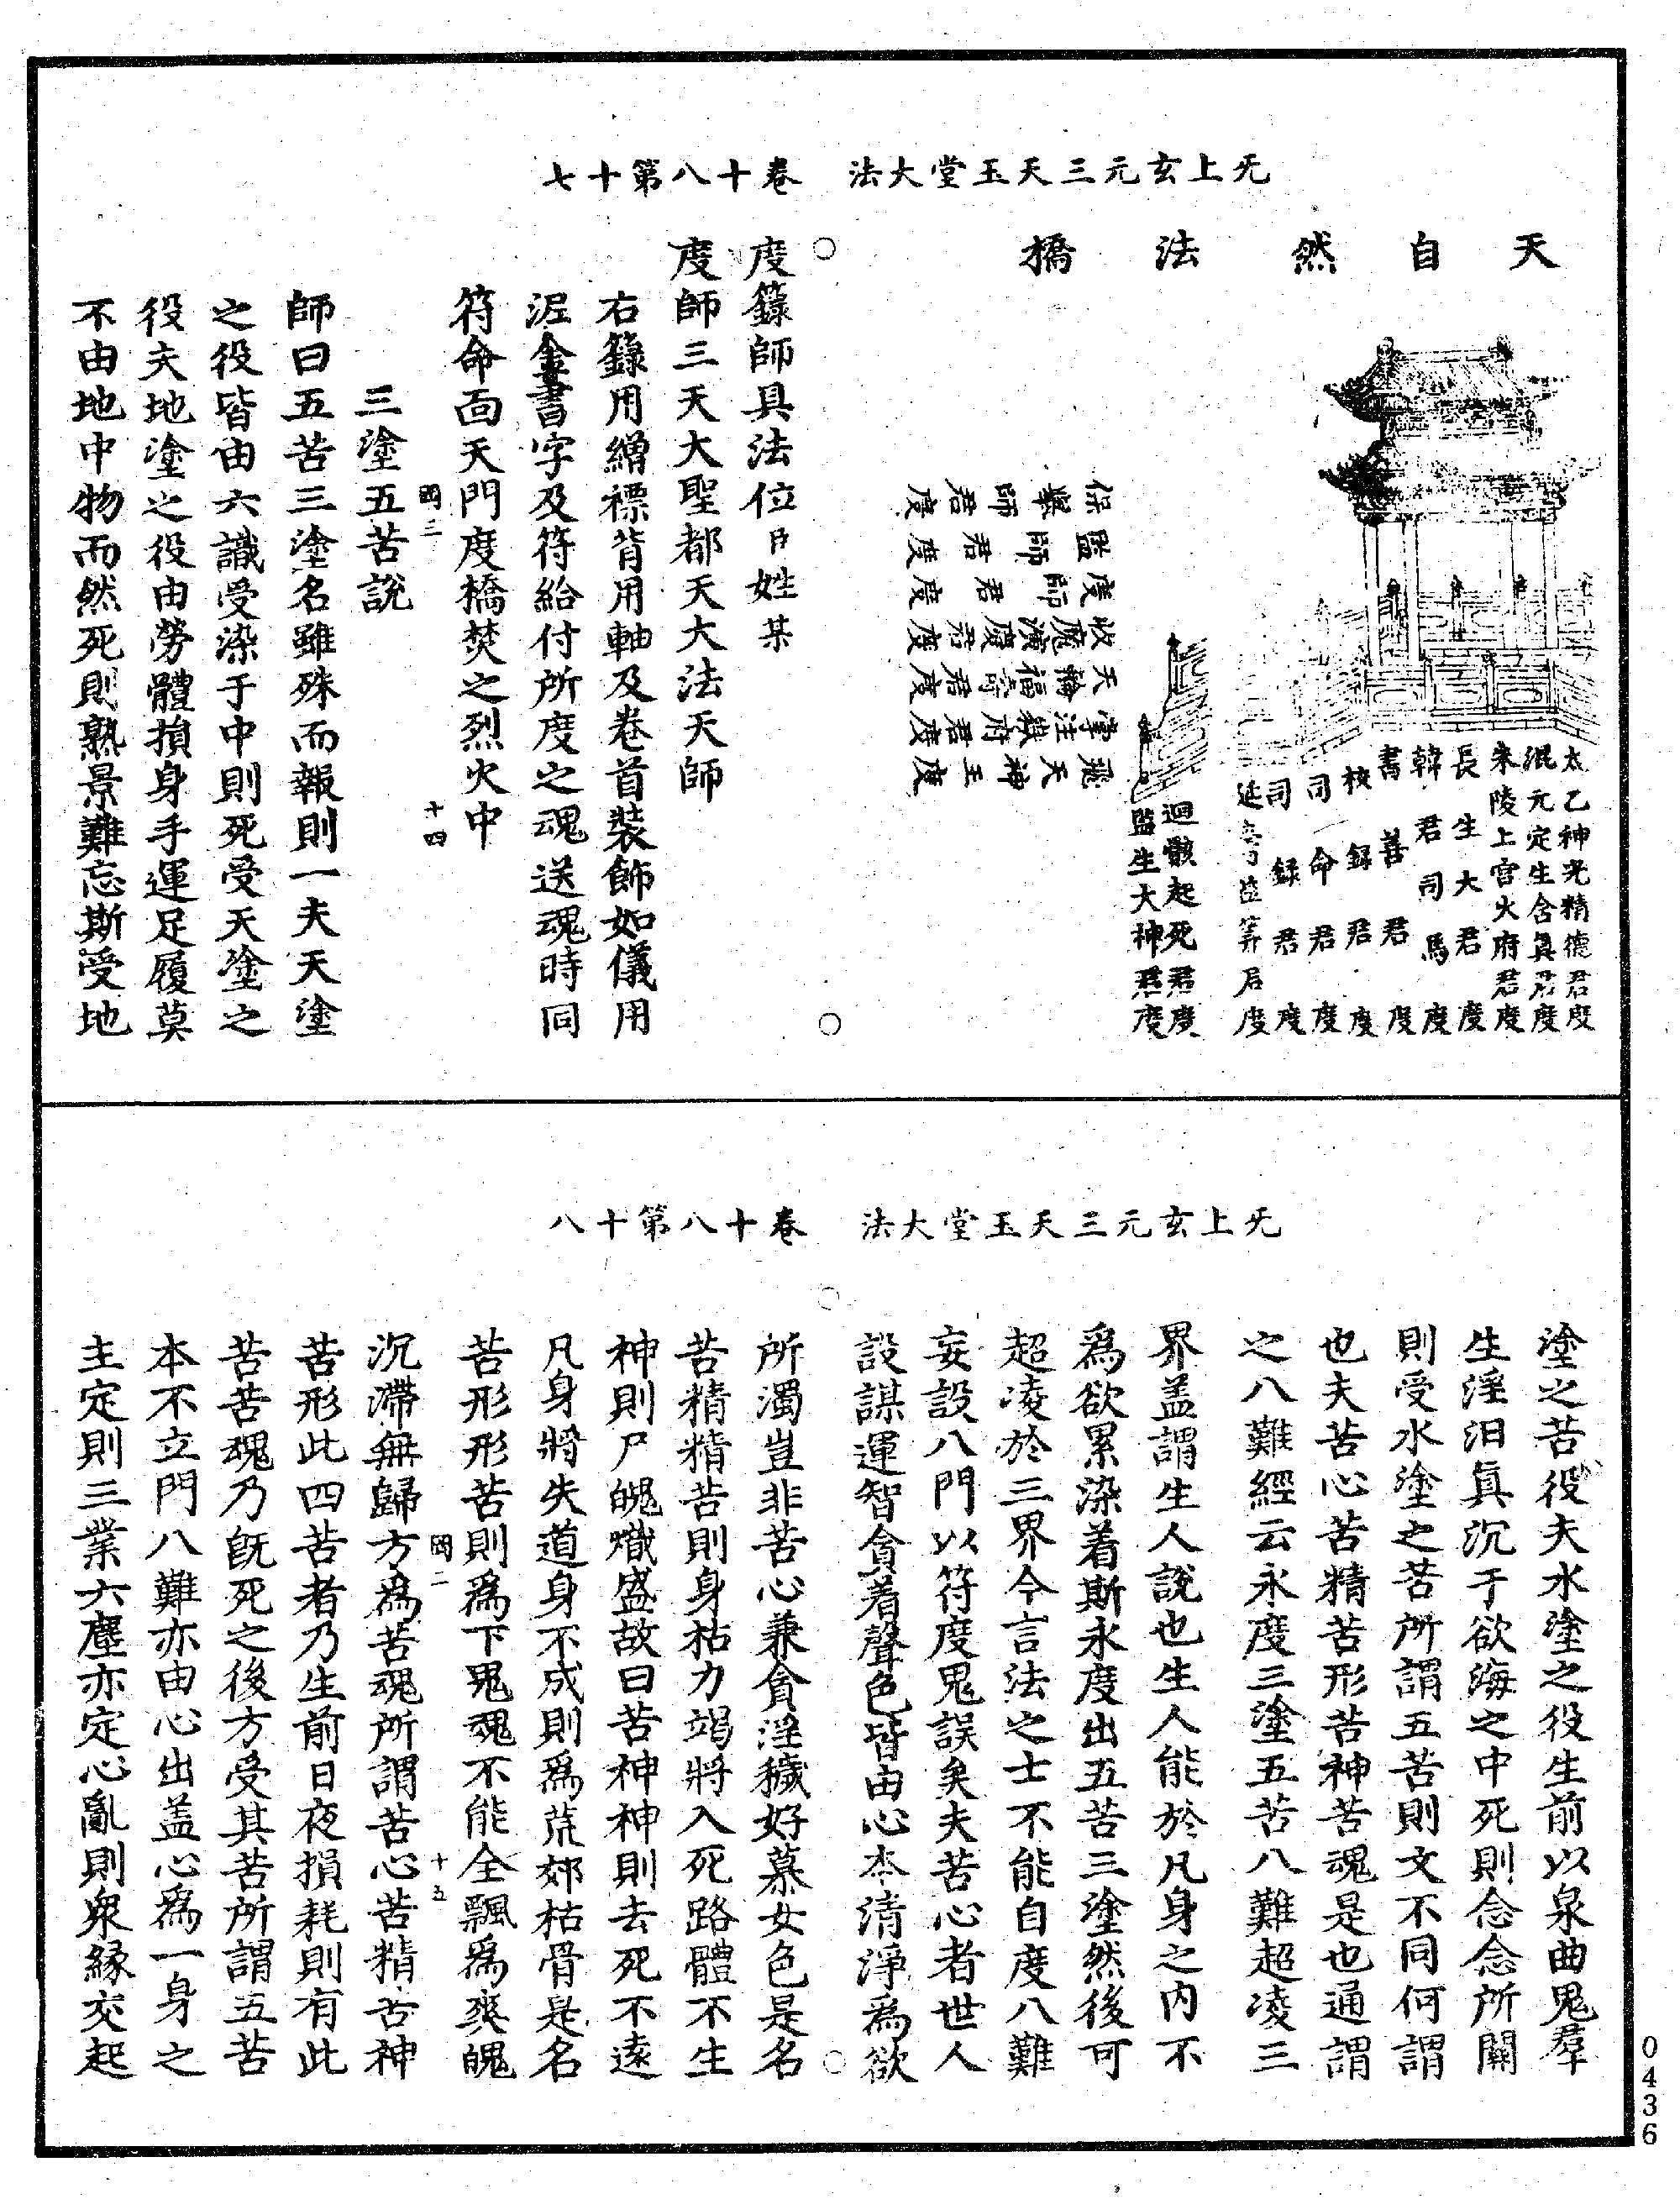 无上玄元三天玉堂大法　卷十八第十七
天自然法橋
太乙神光精德君度
混元定生含真君度
朱陵上宫火府君度
長生大君度
韓君司馬度
書善君度
校録君度
司命君度
司録君度
延壽益筭君度
迴骸起死君度
監生大神君度
保舉師君度
監度師君度
度師君度
收魔演慶君度
天輪福壽君度
飛天神王度
度籙師具法位臣姓某
度師三天大聖都天大法天師
右籙用繒褾背用軸及卷首裝飾如儀用
泥金書字及符給付所度之魂送魂時同
符命面天門度橋焚之烈火中
國二　十四
三塗五苦說
師曰五苦三塗名雖殊而報則一夫天塗
之役皆由六識受染于中則死受天塗之
役夫地塗之役由勞體損身手運足履莫
不由地中物而然死則熟景難忘斯受地
无上玄元三天玉堂大法　卷十八第十八
塗之苦役夫水塗之役生前以泉曲鬼羣
生淫汩眞沉于欲海之中死則念念所關
則受水塗之苦所謂五苦則文不同何謂
也夫苦心苦精苦形苦神苦魂是也通謂
之八難經云永度三塗五苦八難超凌三
界盖謂生人說也生人能於凡身之内不
爲欲累染着斯永度出五苦三塗然後可
超凌於三界今言法之士不能自度八難
妄設八門以符度鬼誤矣夫苦心者世人
設謀運智貪着聲色皆由心本清淨爲欲
所濁豈非苦心兼貪淫穢好慕女色是名
苦精精苦則身枯力竭將入死路體不生
神則尸魄熾盛故曰苦神神則去死不遠
凡身將失道身不成則爲荒郊枯骨是名
苦形形苦則爲下鬼魂不能全飄爲爽魄
國二　十五
沉滯無歸方爲苦魂所謂苦心苦精苦神
苦形此四苦者乃生前日夜損耗則有此
苦苦魂乃旣死之後方受其苦所謂五苦
本不立門八難亦由心出盖心爲一身之
主定則三業六塵亦定心亂則衆緣交起
0436